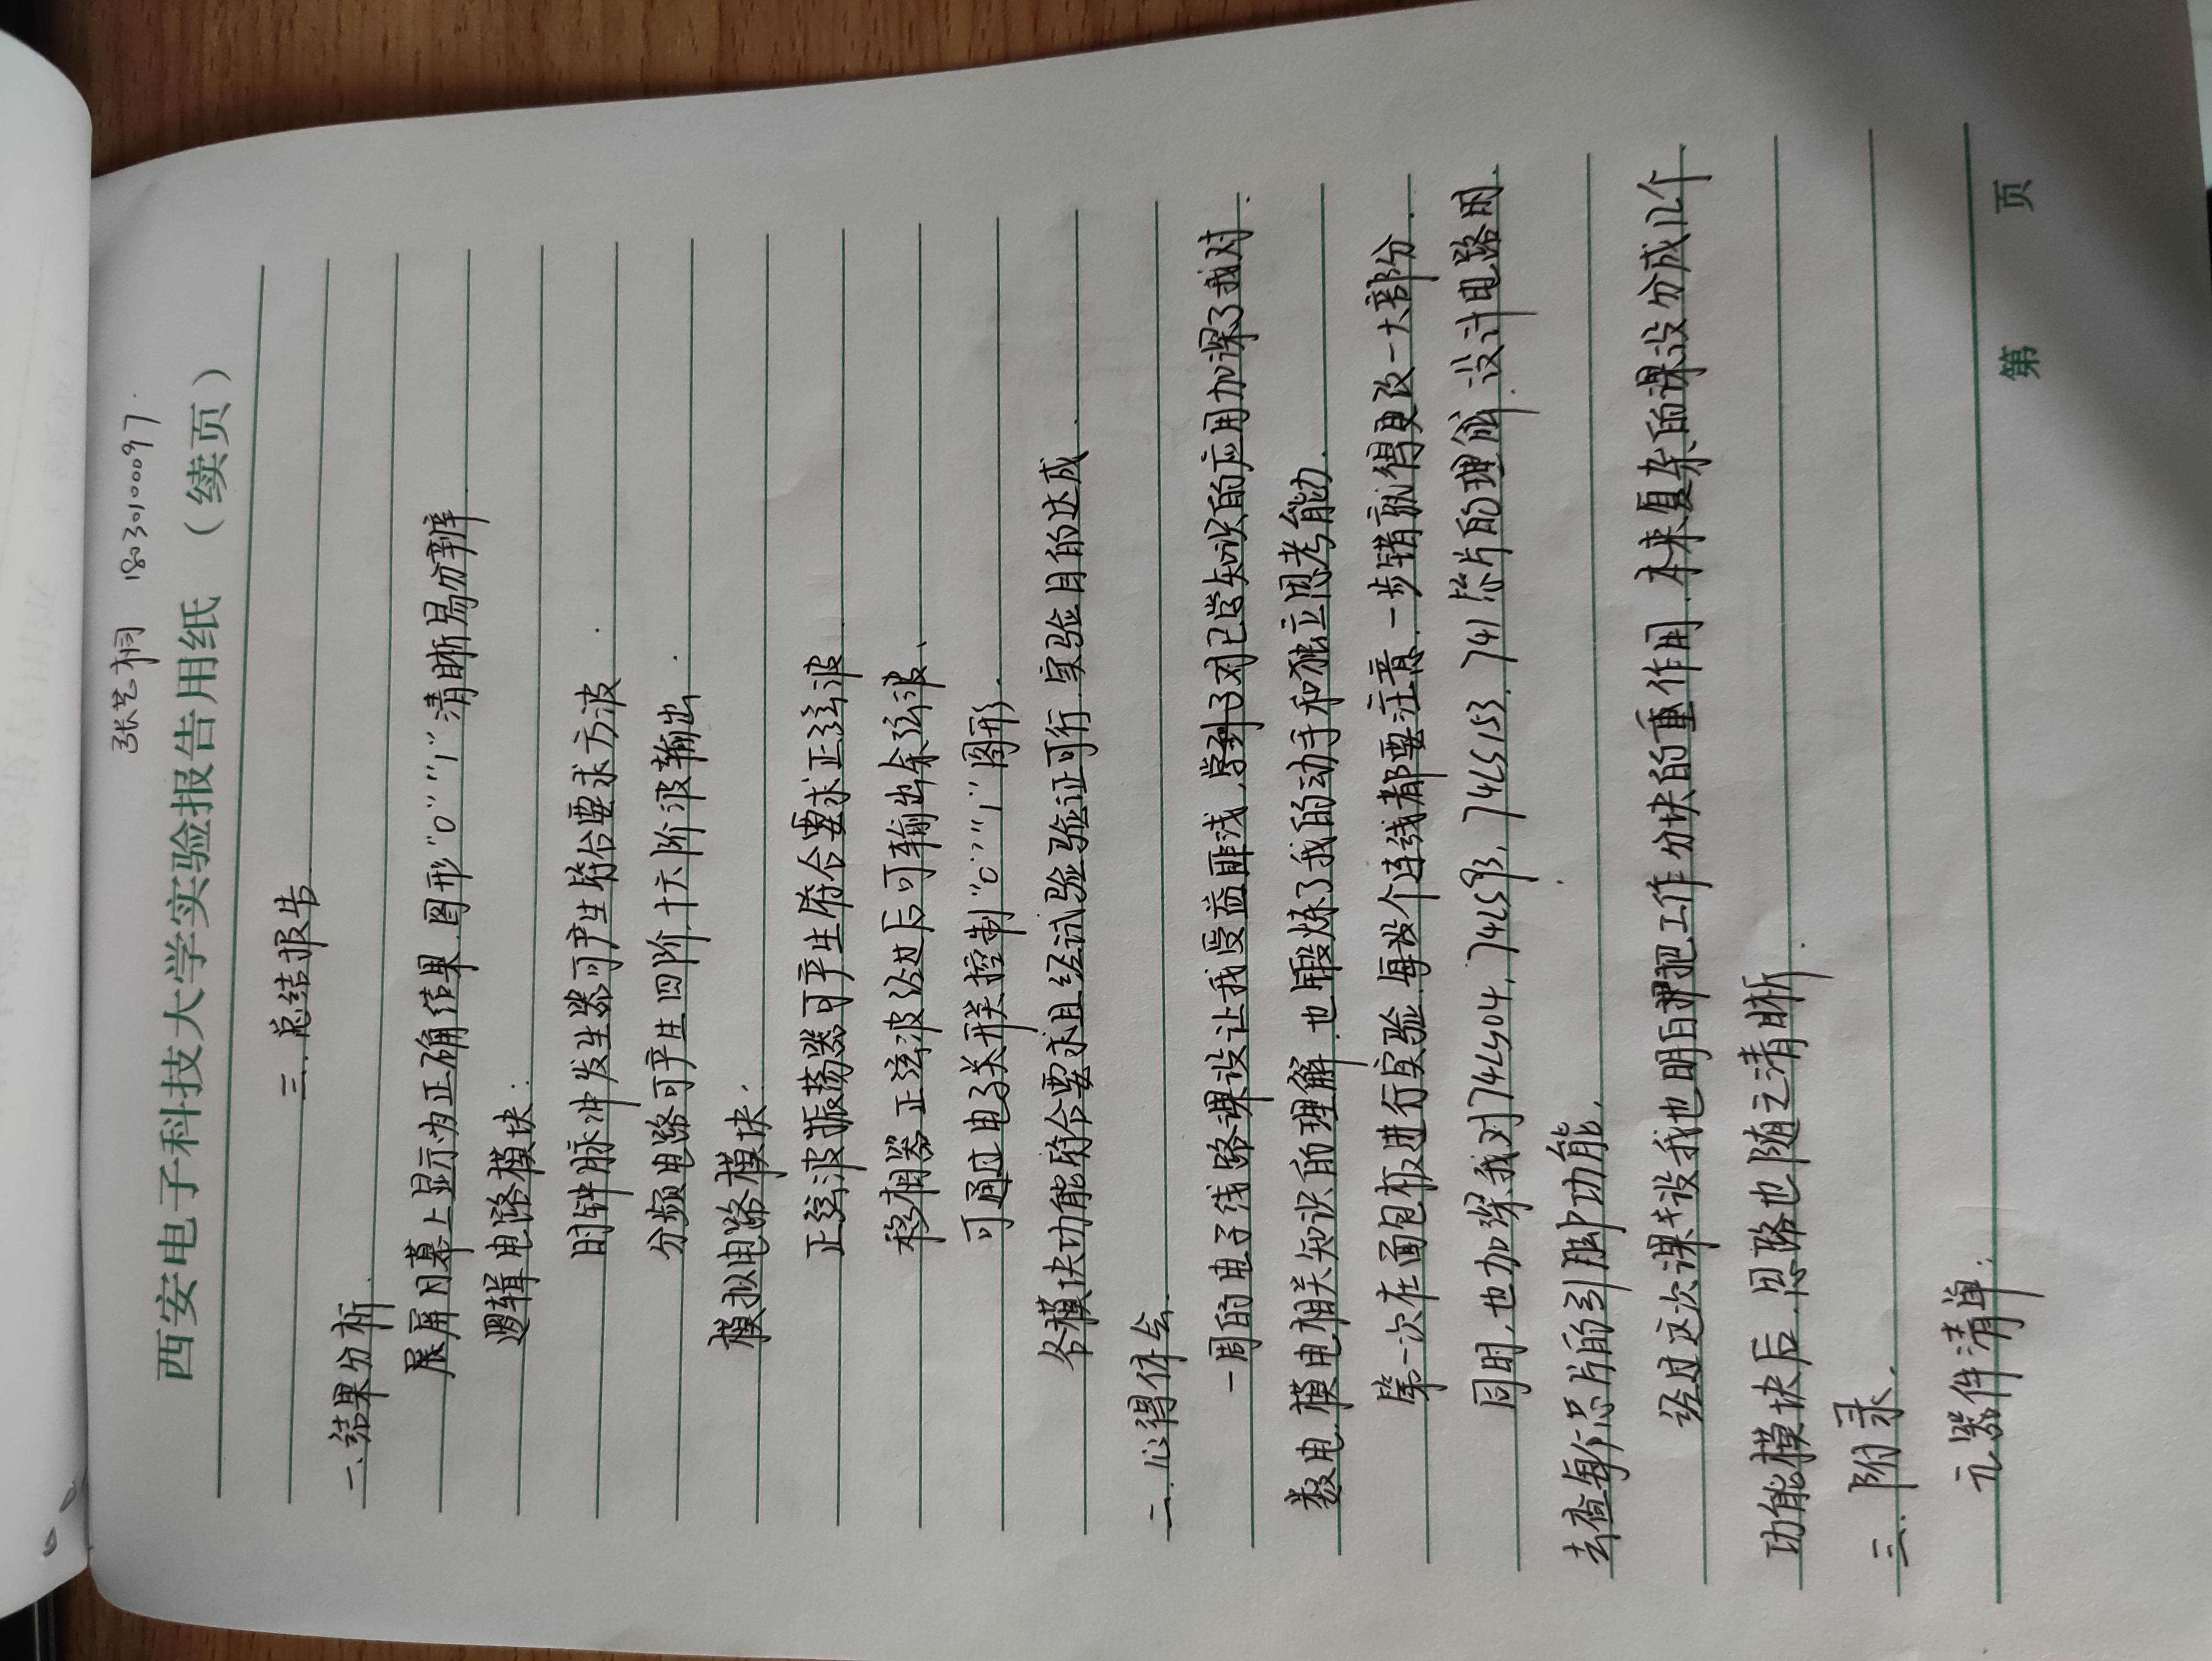 张艺桐 18030100097.
西安电子科技大学实验报告用纸（续页）
三.总结报告
一.结果分析.
屏幕上显示为正确结果.图形"0""1"清晰易分辨.
逻辑电路模块：
时钟脉冲发生器可产生符合要求方波.
分频电路可产生四阶.十六阶波输出.
模拟电路模块：
正弦波振荡器可产生符合要求正弦波.
移相器正弦波经过后可输出余弦波、
可通过电子关开关控制"0""1"图形.
各模块功能符合要求且经试验验证可行.实验目的达成.
二.心得体会.
一周的电子线路课设让我受益匪浅,学到了对已学知识的应用加深了我对.
数电.模电相关知识的理解.也锻炼了我的动手和独立思考能力.
第一次在面包板进行实验.每个连线都要注意.一步错就得更改一大部分.
同时,也加深我对74LS04,74LS93,74LS153.741芯片的理解.设计电路时.
去查每个芯片的引脚功能.
经过这次课设我也明白把工作分块的重作用.本来复杂的课设分成几个
功能模块后.思路也随之清晰.
三.附录.
元器件清单：
第 页